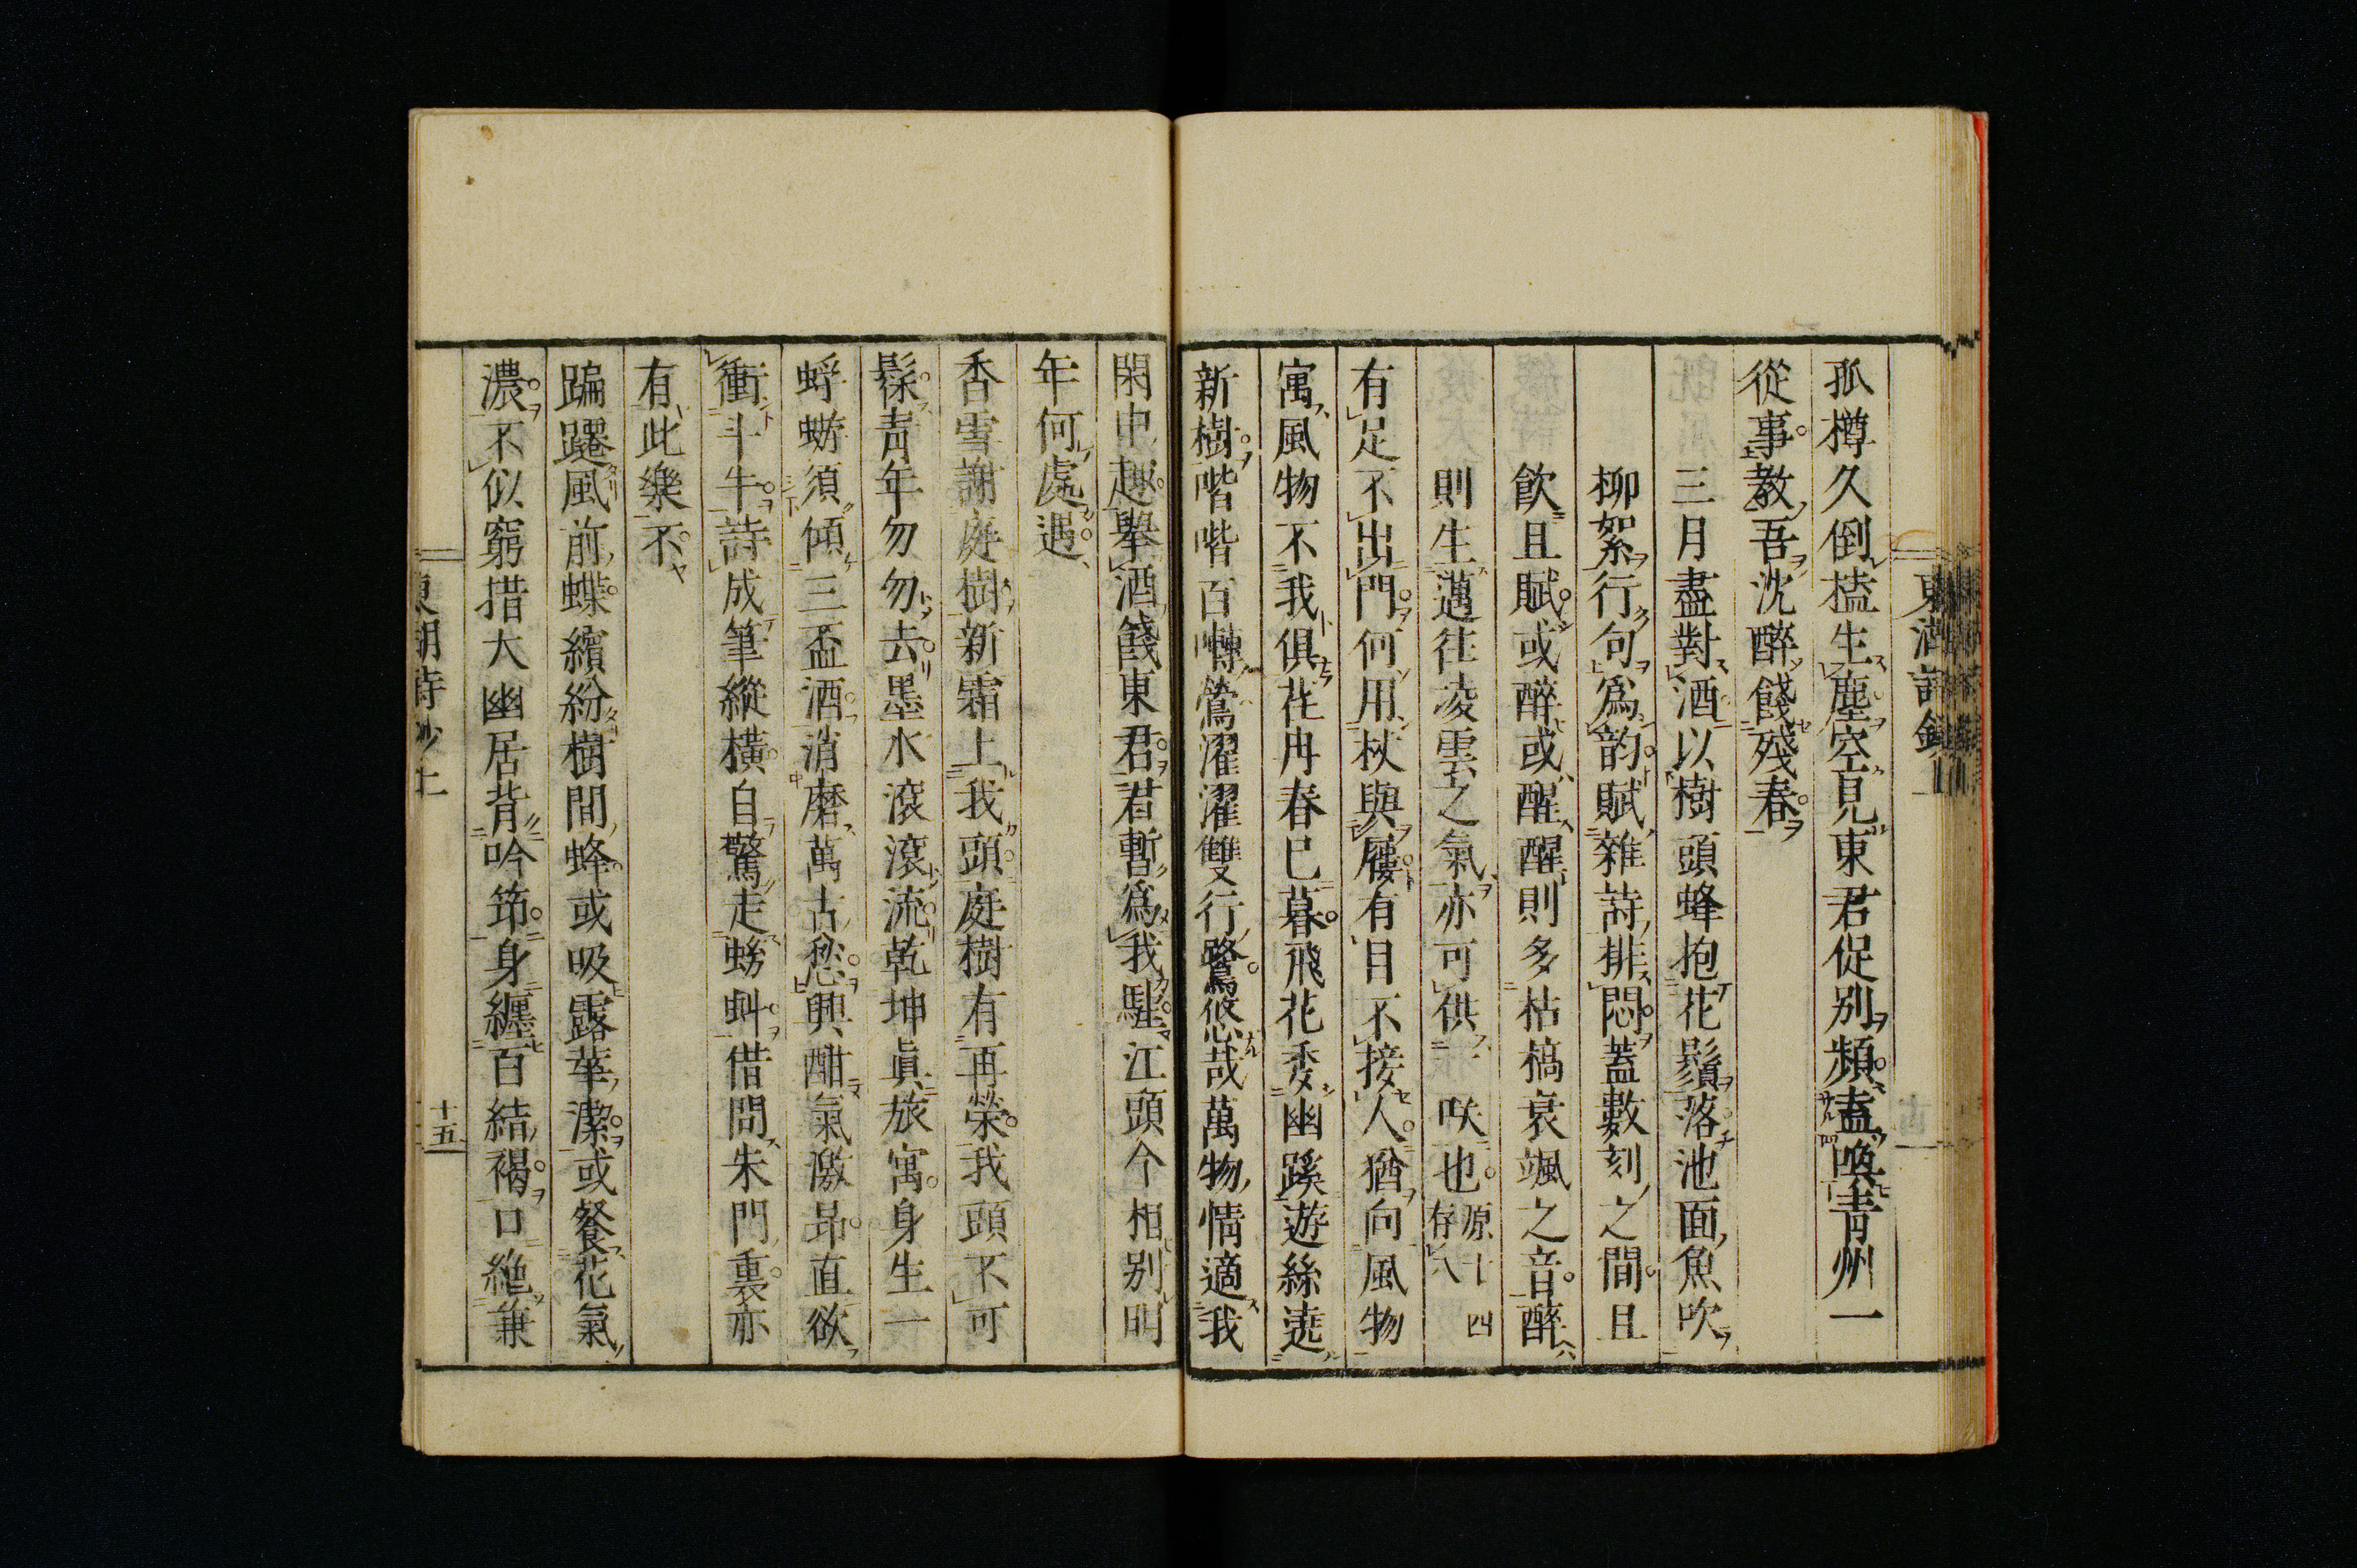 孤樽久倒榼生塵空見東君促別頻盍喚靑州一
從事敎吾沈醉餞殘春
三月盡對酒以樹頭蜂抱花鬚落池面魚吹
柳絮行句爲韵賦雜詩排悶蓋數刻之間且
飮且賦或醉或醒醒則多枯槁衰颯之音醉
則生邁往凌雲之氣亦可供一咲也原十四存八
有足不出門何用杖與屨有目不接人猶向風物
寓風物不我俱荏冉春已暮飛花委幽蹊遊絲遶
新樹喈喈百囀鶯濯濯雙行鷺悠哉萬物情適我
閑中趣擧酒餞東君君暫爲我駐江頭今相別明
年何處遇
香雪謝庭樹新霜上我頭庭樹有再榮我頭不可
鬒靑年勿勿去墨水滾滾流乾坤眞旅寓身生一
蜉蝣須傾三盃酒消磨萬古愁興酣氣激昂直欲
衝斗牛詩成筆縱橫自驚走蛟虯借問朱門裏亦
有此樂不
蹁躚風前蝶繽紛樹間蜂或吸露華潔或餐花氣
濃不似窮措大幽居背吟筇身纏百結褐口絶兼
東湖詩鈔上
十五